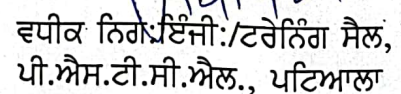 ਵਧੀਕ ਨਿਗ:ਇੰਜੀ:/ਟਰੇਨਿੰਗ ਸੈਲ,
ਪੀ.ਐਸ.ਟੀ.ਸੀ.ਐਲ., ਪਟਿਆਲਾ